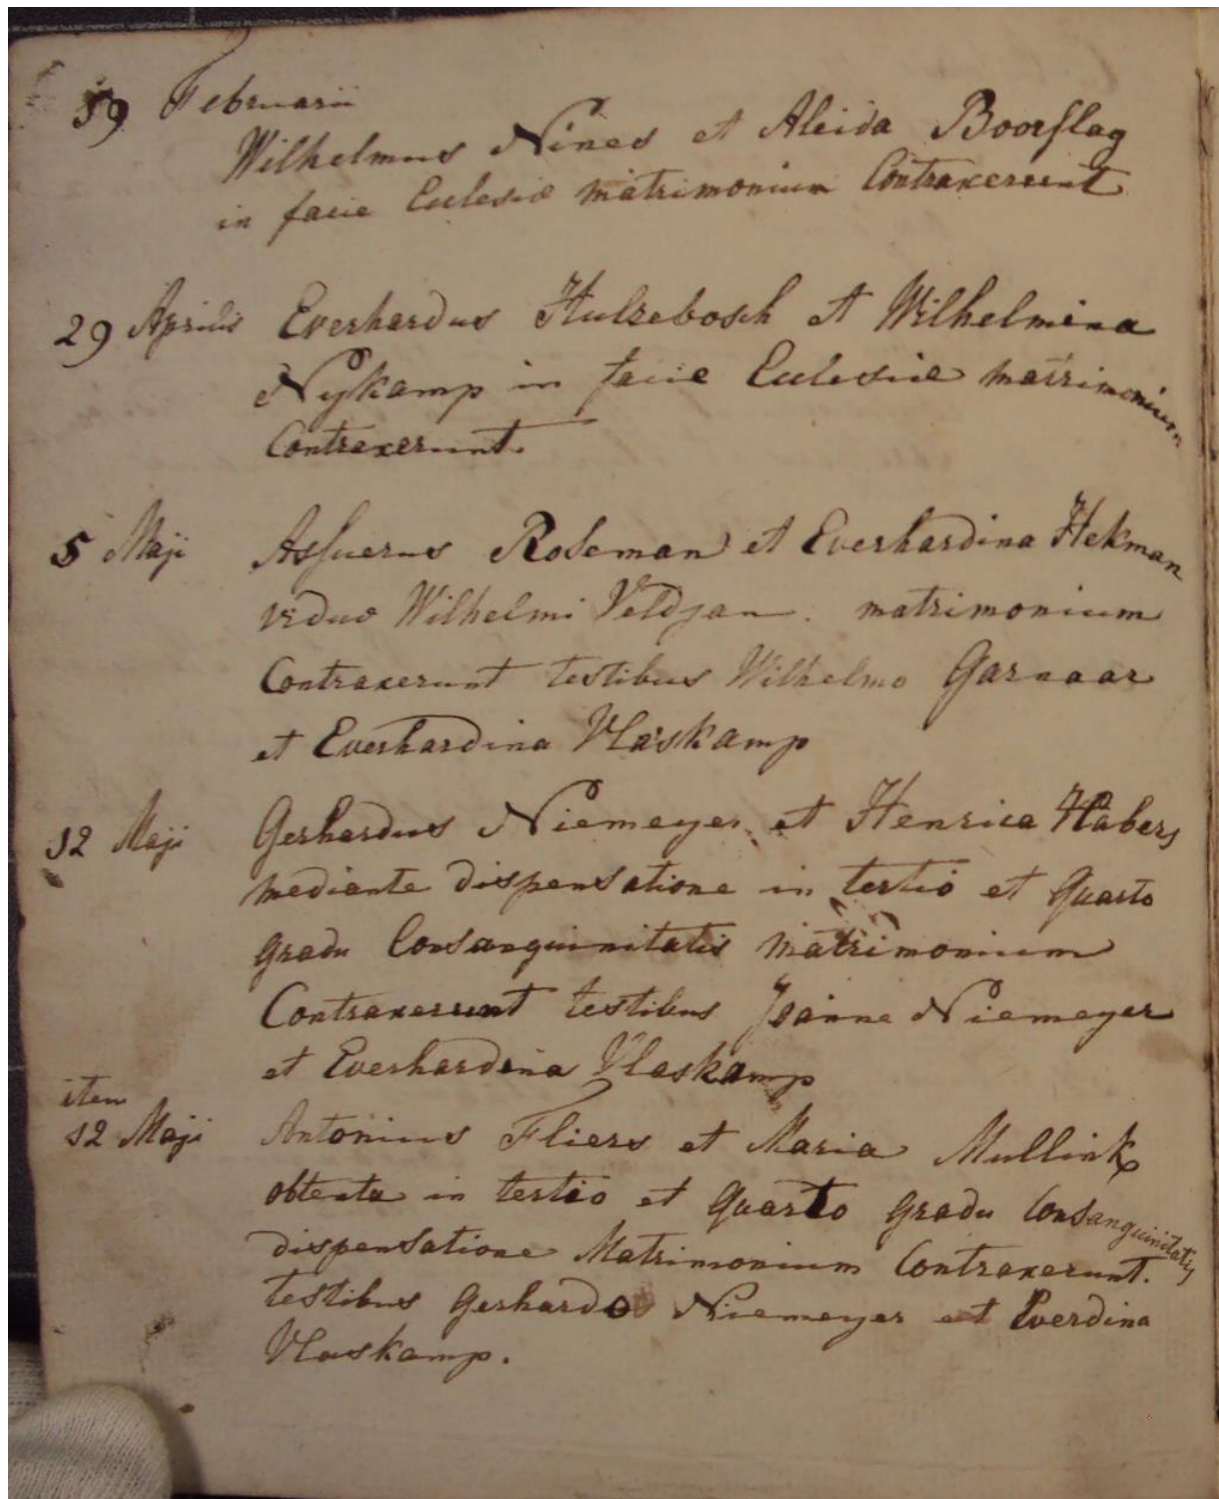 19 Februarii
Wilhelmus Nines et Aleida Boorslag
in facie Eclesiæ matrimonium Contraxerunt
29 Aprilis Everhardus Hulzebosch et Wilhelmina
Nijkamp in facie Eclesiæ matrimonium
Contraxerunt.
5 Maji Assuerus Roseman et Everhardina Hekman
viduo Wilhelmi Veldjan. matrimonium
Contraxerunt testibus Wilhelmo Garnaar
et Everhardina Vlaskamp
12 Maji Gerhardus Niemeyer et Henrica Habers
mediante dispensatione in tertio et quarto
gradu Consanguinitatis matrimonium
Contraxerunt testibus Joanne Niemeyer
et Everhardina Vlaskamp
item
12 Maji Antonius Fliers et Maria Mullink
obtenta in tertio et quarto gradu Consanguinitatis
dispensatione Matrimonium Contraxerunt.
testibus Gerhardo Niemeyer et Everdina
Vlaskamp.